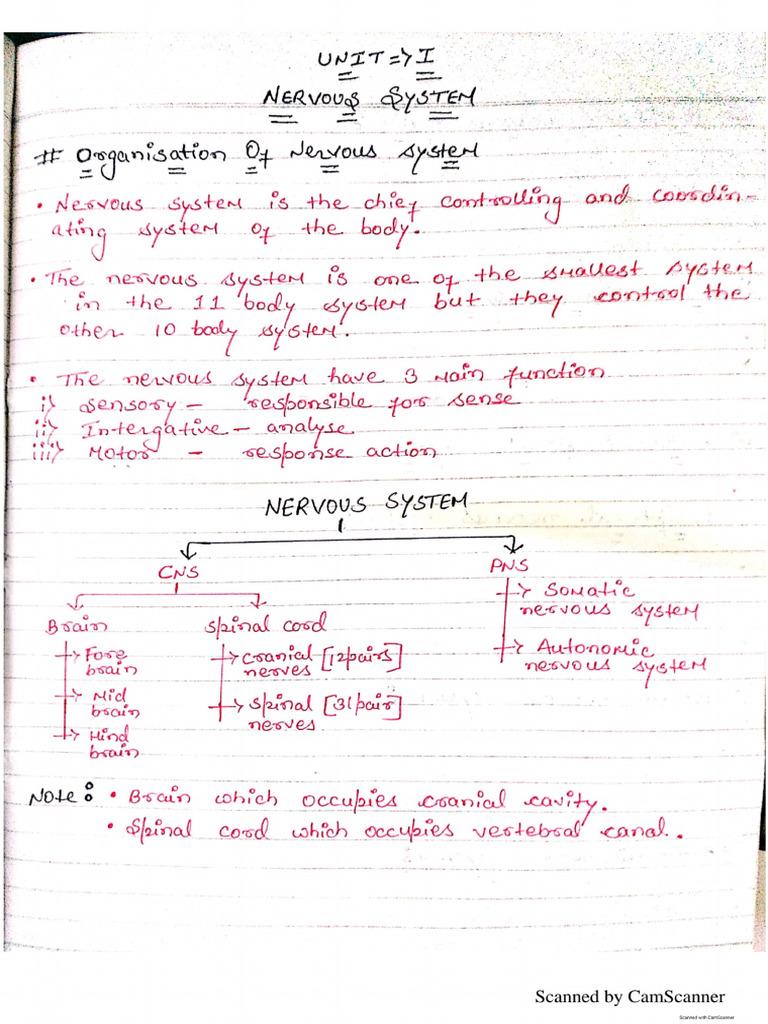 UNIT => I
NERVOUS SYSTEM
# Organisation Of Nervous System
• Nervous system is the chief controlling and coordin-
ating system of the body.
• The nervous system is one of the smallest system
in the 11 body system but they control the
other 10 body system.
• The nervous system have 3 main function
i) Sensory – responsible for sense
ii) Intergative – analyse
iii) Motor – response action
NERVOUS SYSTEM
CNS PNS
Brain Spinal cord
→ Somatic
nervous system
→ Autonomic
nervous system
→ Fore
brain
→ Mid
brain
→ Hind
brain
→ cranial [12pairs]
nerves
→ Spinal [31pair]
nerves
Note: • Brain which occupies cranial cavity.
• Spinal cord which occupies vertebral canal.
Scanned by CamScanner
Scanned with CamScanner